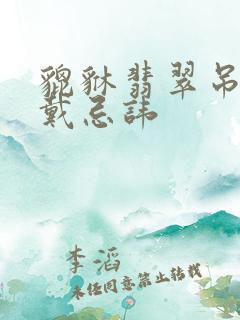 貔貅翡翠吊
戴忌諱
李滔
未经同意禁止转载